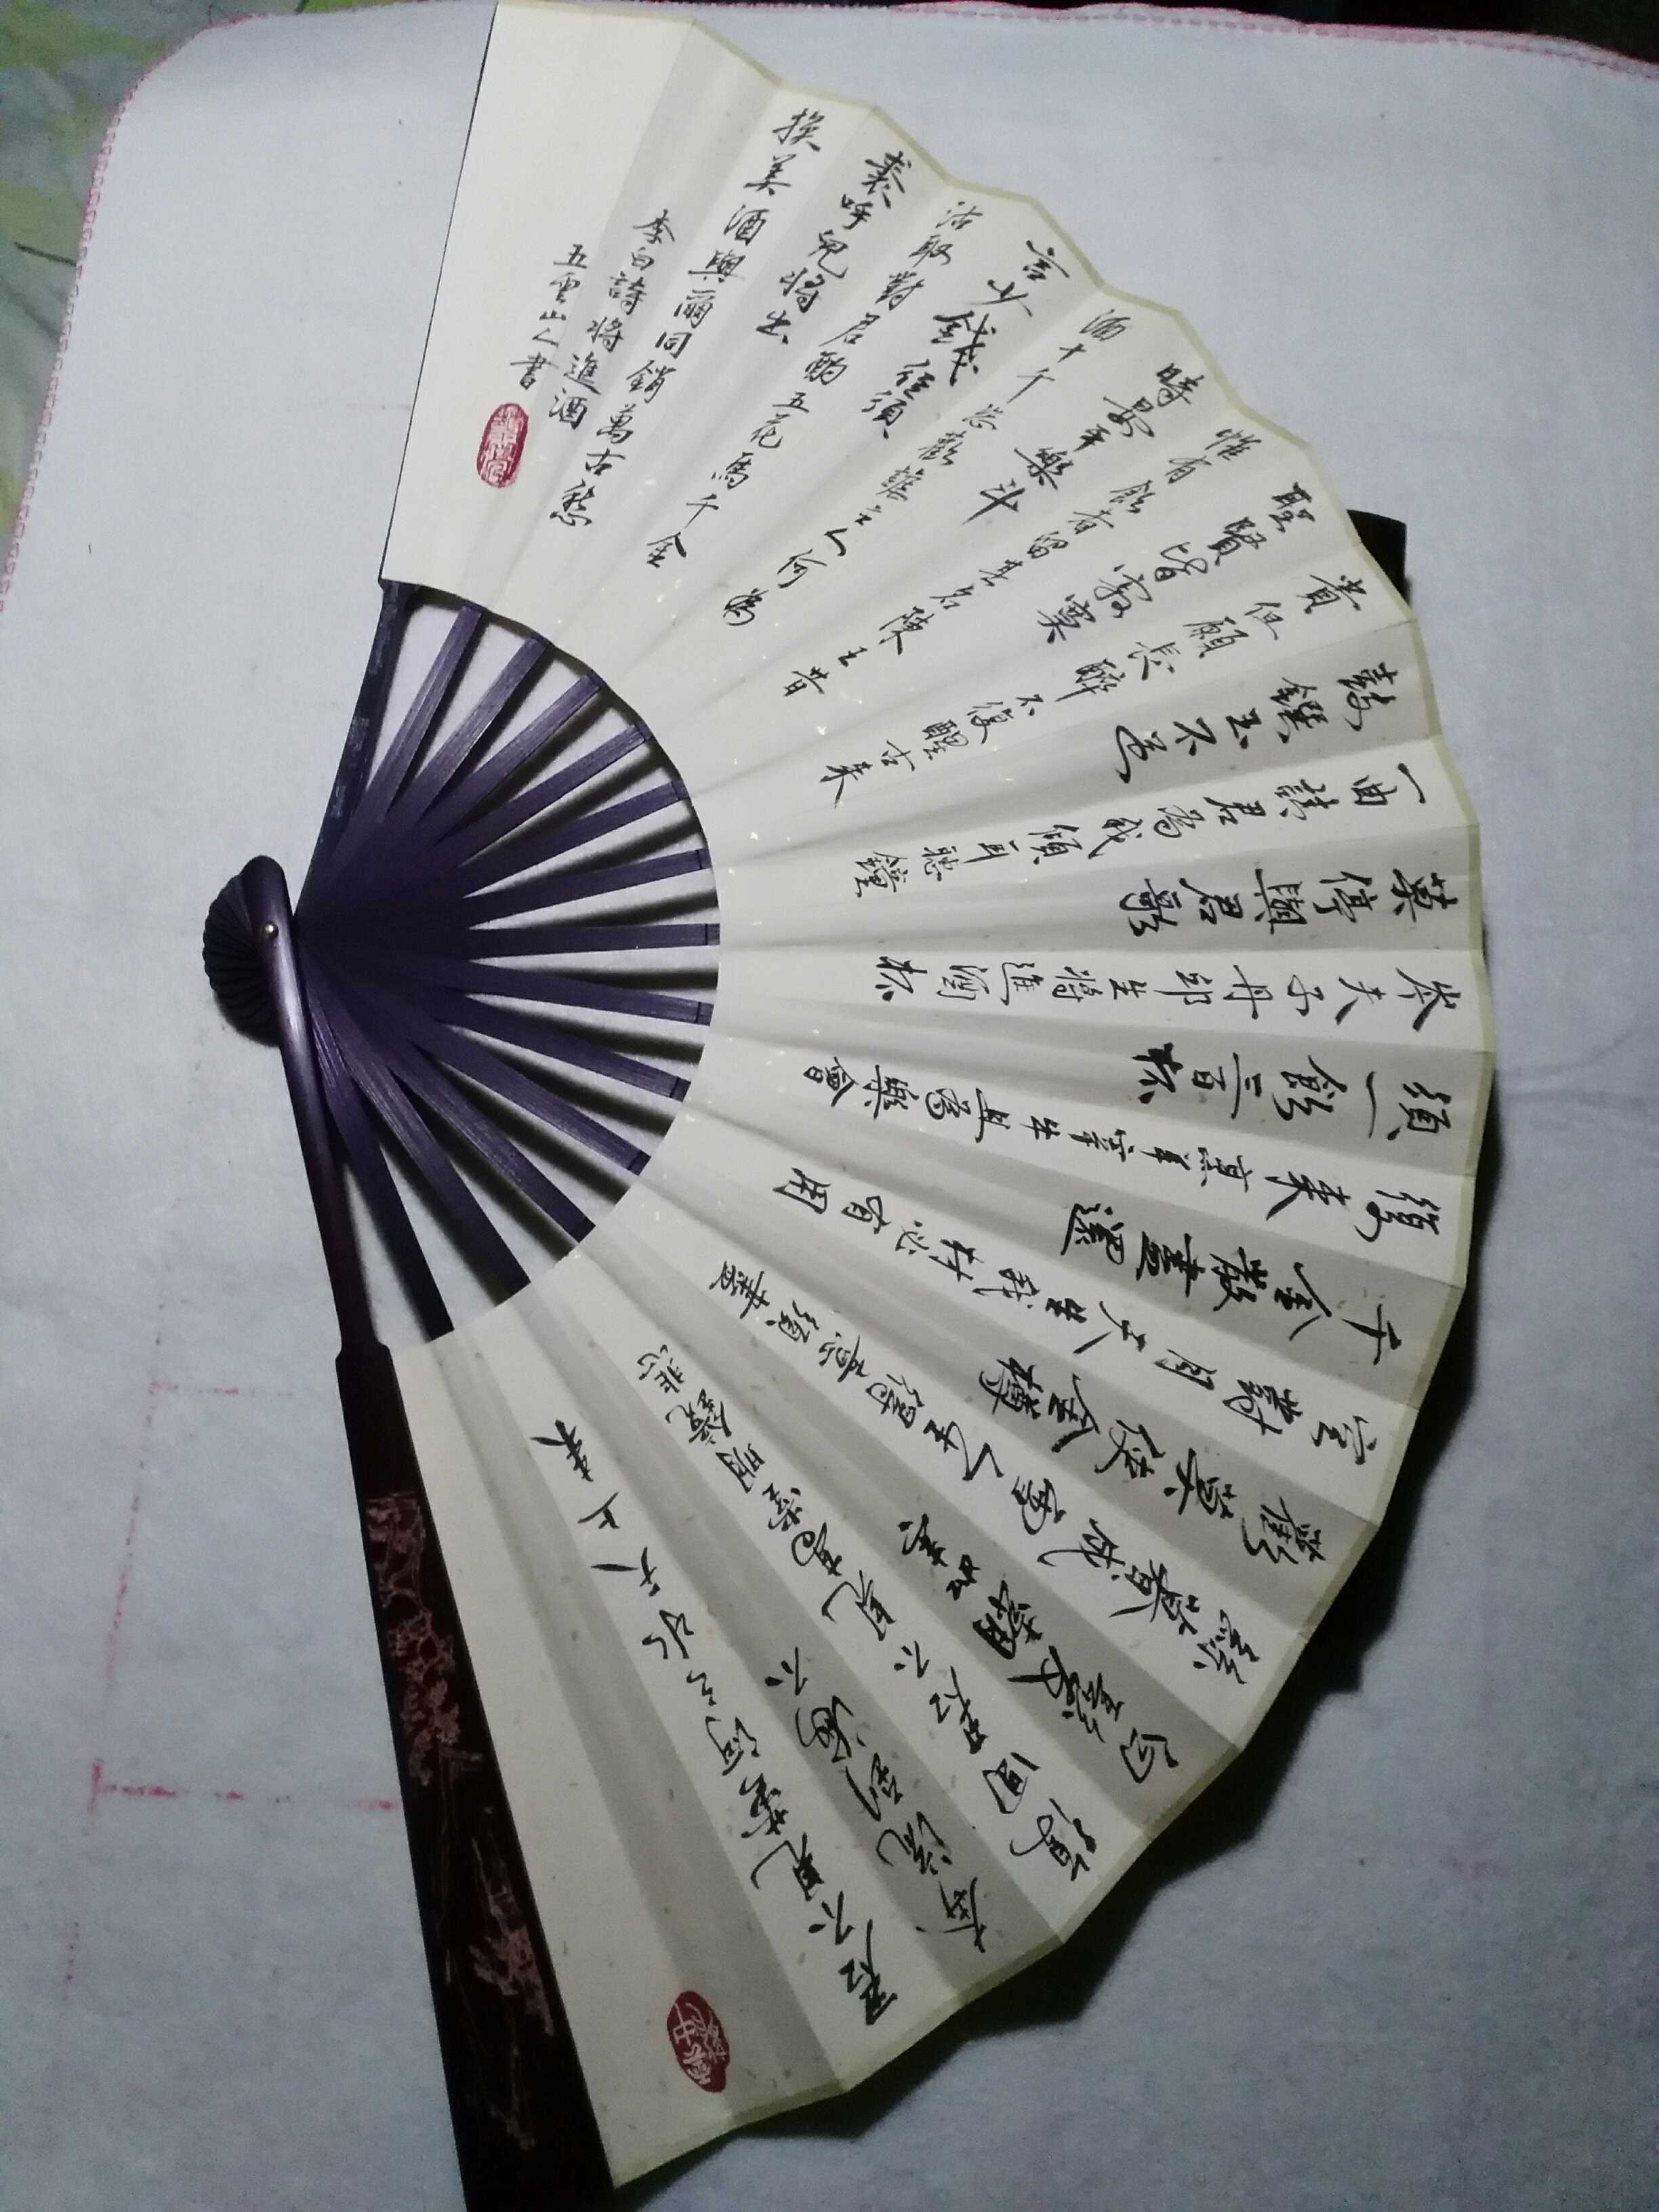 君不見黃河之水天上來
奔流到海不
復回君不見高堂明鏡悲
白髮朝如青
絲暮成雪人生得意須盡
歡莫使金樽
空對月天生我材必有用
千金散盡還
復來烹羊宰牛且為樂會
須一飲三百杯
岑夫子丹邱生將進酒杯
莫停與君歌
一曲請君為我傾耳聽鐘
鼓饌玉不足
貴但願長醉不復醒古來
聖賢皆寂寞
惟有飲者留其名陳王昔
時宴平樂斗
酒十千恣歡謔主人何為
言少錢徑須
沽取對君酌五花馬千金
裘呼兒將出
換美酒與爾同銷萬古愁
李白詩將進酒
五雲山人書